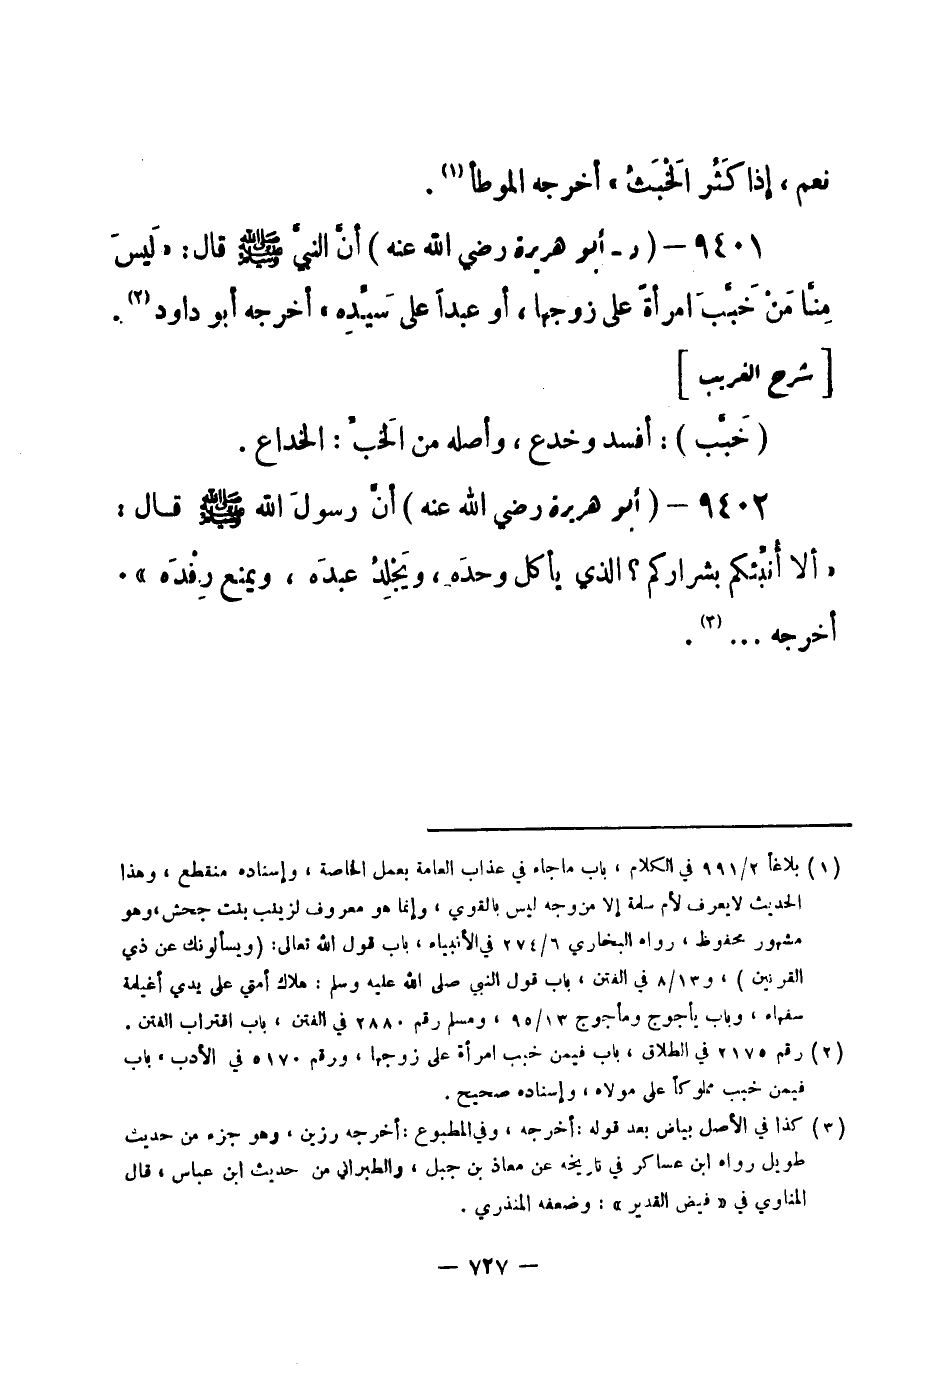 نعم ، إذا كَثُر الخَبَثُ » أخرجه الموطأ (١) .
٩٤٠١ – ( د ـ أبو هريرة رضي الله عنه ) أنَّ النبيَّ ﷺ قال : « لَيسَ
مِنَّا مَنْ خَبَّبَ امرأةً على زوجها ، أو عبداً على سَيِّدِه » أخرجه أبو داود (٢) .
[ شرح الغريب ]
( خَبَّب ) : أفسد وخدع ، وأصله من الخَبّ : الخداع .
٩٤٠٢ – ( أبو هريرة رضي الله عنه ) أنَّ رسولَ الله ﷺ قـال :
« ألا أُنَبِّئكم بشراركم ؟ الذي يأكل وحدَه ، ويَجْلِدُ عبدَه ، ويمنع رِفْدَه » .
أخرجه ... (٣) .
(١) بلاغاً ٩٩١/٢ في الكلام ، باب ماجاء في عذاب العامة بعمل الخاصة ، وإسناده منقطع ، وهذا
الحديث لايعرف لأم سلمة إلا من وجه ليس بالقوي ، وإنما هو معروف لزينب بنت جحش ، وهو
مشهور محفوظ ، رواه البخاري ٢٧٤/٦ في الأنبياء ، باب قول الله تعالى : ( ويسألونك عن ذي
القرنين ) ، و ٨/١٣ في الفتن ، باب قول النبي صلى الله عليه وسلم : هلاك أمتي على يدي أغيلمة
سفهاء ، وباب يأجوج ومأجوج ٩٥/١٣ ، ومسلم رقم ٢٨٨٠ في الفتن ، باب اقتراب الفتن .
(٢) رقم ٢١٧٥ في الطلاق ، باب فيمن خبب امرأة على زوجها ، ورقم ٥١٧٠ في الأدب ، باب
فيمن خبب مملوكاً على مولاه ، وإسناده صحيح .
(٣) كذا في الأصل بياض بعد قوله : أخرجه ، وفي المطبوع : أخرجه رزين ، وهو جزء من حديث
طويل رواه ابن عساكر في تاريخه عن معاذ بن جبل ، والطبراني من حديث ابن عباس ، قال
المناوي في « فيض القدير » : وضعفه المنذري .
– ٧٢٧ –